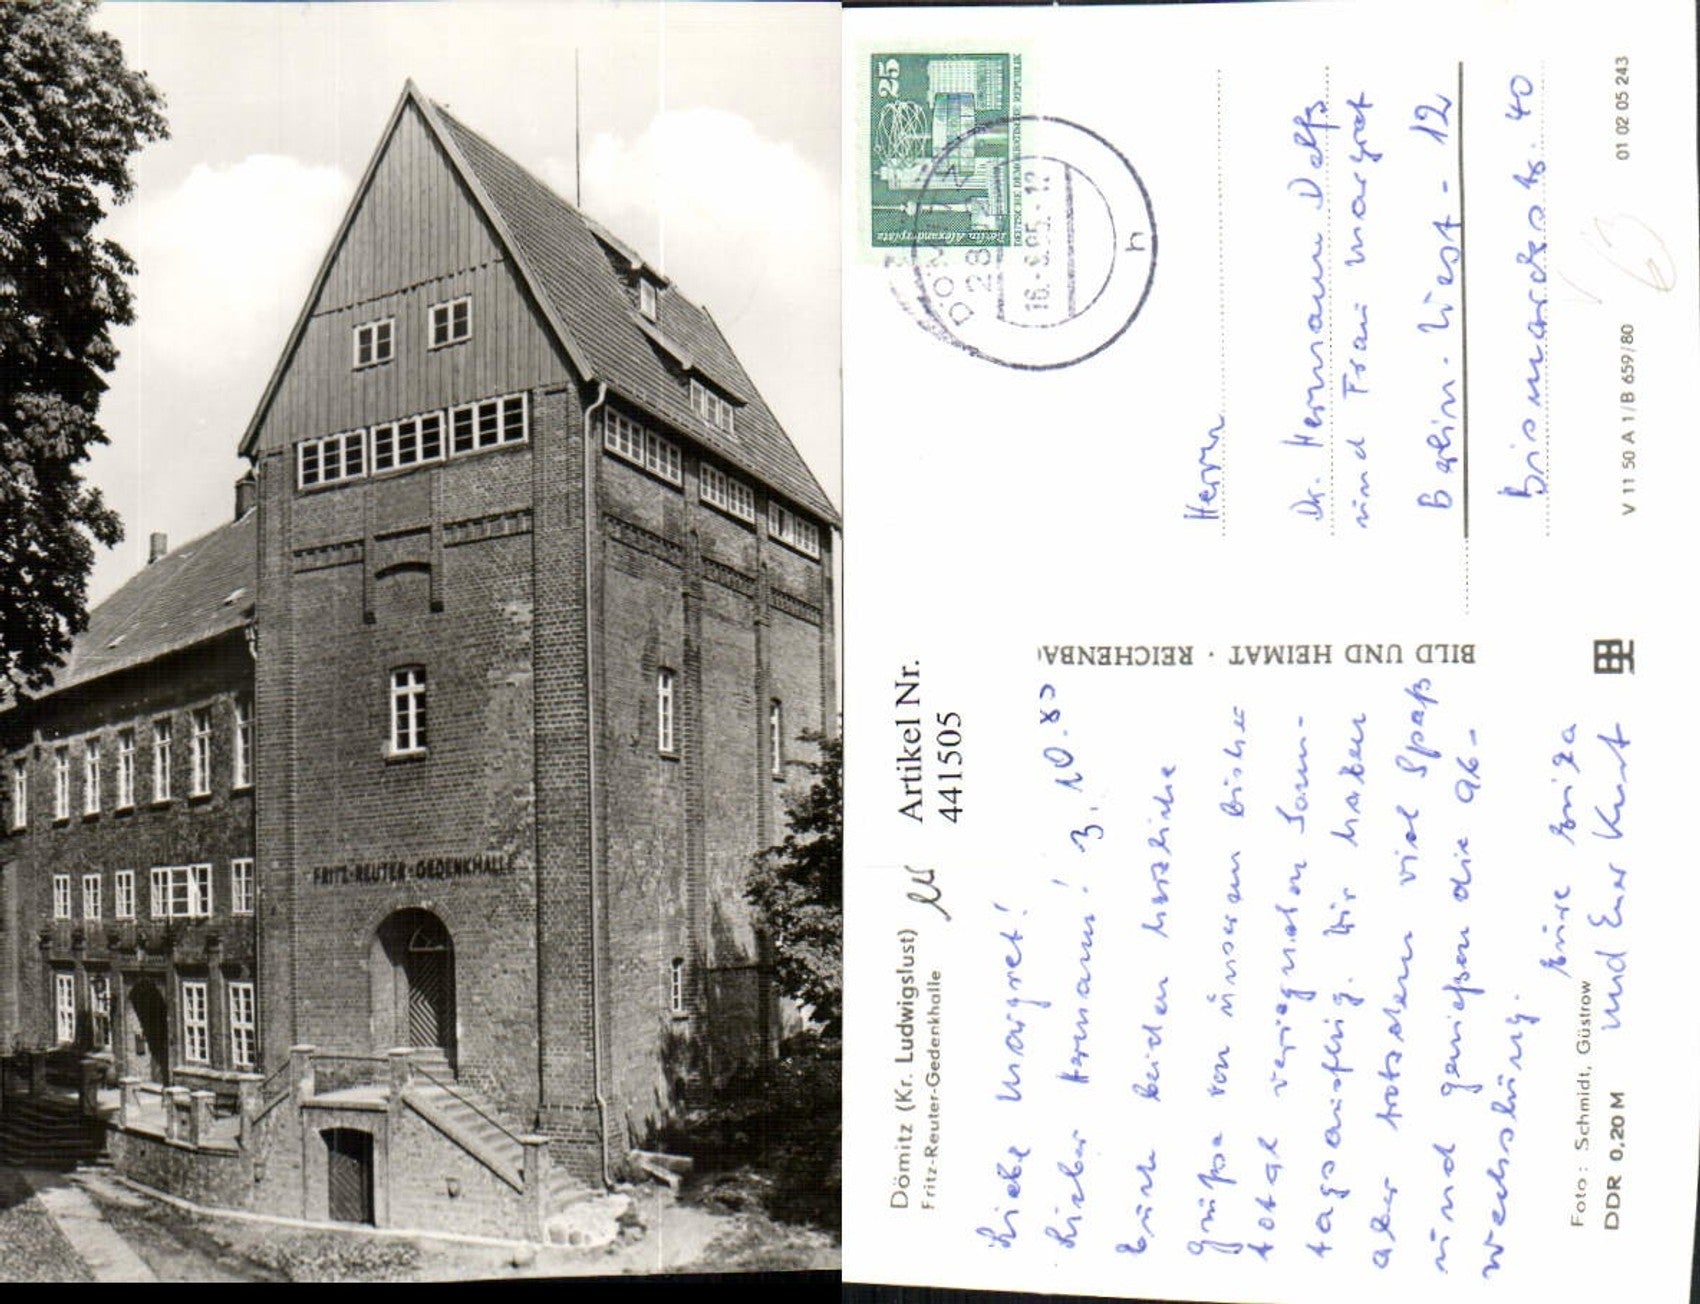 FRITZ-REUTER-GEDENKHALLE
Dömitz (Kr. Ludwigslust)
Fritz-Reuter-Gedenkhalle
Artikel Nr.
441505
Liebe Margret!
Lieber Hermann! 3. 10. 80
Euch beiden herzliche
Grüße von unserem bisher
total verregneten Sonn-
tagsausflug. Wir haben
aber trotzdem viel Spaß
und genießen die Ab-
wechslung.
Eure Erika
und Euer Kurt
Foto: Schmidt, Güstrow
DDR 0,20 M
BILD UND HEIMAT · REICHENBA
25
Berlin, Alexanderplatz
DEUTSCHE DEMOKRATISCHE REPUBLIK
DÖMITZ
28
h
Herrn
Dr. Hermann
und Frau Margret
Berlin-West - 12
Bismarckstr. 40
V 11 50 A 1/B 659/80
01 02 05 243